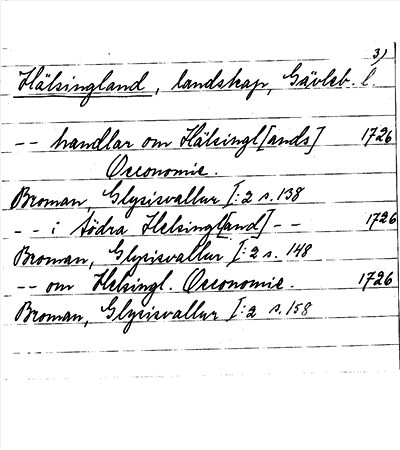 3)
Hälsingland, landskap, Gävleb. l.
-- handlar om Hälsingl[ands] 1726
Oeconomie.
Broman, Glysisvallur I:2 s. 138
-- i södra Helsingl[and] -- 1726
Broman, Glysisvallur I:2 s. 148
-- om Helsingl. Oeconomie. 1726
Broman, Glysisvallur I:2 s. 158